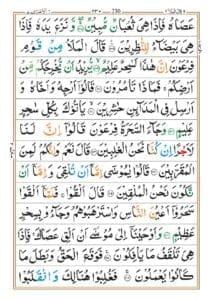 عَصَاهُ فَاِذَا هِىَ ثُعْبَانٌ مُّبِيْنٌ ۝ وَّنَزَعَ يَدَهٗ فَاِذَا
هِىَ بَيْضَآءُ لِلنّٰظِرِيْنَ ۝ قَالَ الْمَلَاُ مِنْ قَوْمِ
فِرْعَوْنَ اِنَّ هٰذَا لَسٰحِرٌ عَلِيْمٌ ۝ يُّرِيْدُ اَنْ يُّخْرِجَكُمْ مِّنْ
اَرْضِكُمْ فَمَاذَا تَاْمُرُوْنَ ۝ قَالُوْٓا اَرْجِهْ وَاَخَاهُ وَ
اَرْسِلْ فِى الْمَدَآئِنِ حٰشِرِيْنَ ۝ يَاْتُوْكَ بِكُلِّ سٰحِرٍ
عَلِيْمٍ ۝ وَجَآءَ السَّحَرَةُ فِرْعَوْنَ قَالُوْٓا اِنَّ لَنَا
لَاَجْرًا اِنْ كُنَّا نَحْنُ الْغٰلِبِيْنَ ۝ قَالَ نَعَمْ وَاِنَّكُمْ لَمِنَ
الْمُقَرَّبِيْنَ ۝ قَالُوْا يٰمُوْسٰٓى اِمَّآ اَنْ تُلْقِىَ وَاِمَّآ اَنْ
نَّكُوْنَ نَحْنُ الْمُلْقِيْنَ ۝ قَالَ اَلْقُوْا فَلَمَّآ اَلْقَوْا
سَحَرُوْٓا اَعْيُنَ النَّاسِ وَاسْتَرْهَبُوْهُمْ وَجَآءُوْ بِسِحْرٍ
عَظِيْمٍ ۝ وَاَوْحَيْنَآ اِلٰى مُوْسٰٓى اَنْ اَلْقِ عَصَاكَ فَاِذَا
هِىَ تَلْقَفُ مَا يَاْفِكُوْنَ ۝ فَوَقَعَ الْحَقُّ وَبَطَلَ مَا
كَانُوْا يَعْمَلُوْنَ ۝ فَغُلِبُوْا هُنَالِكَ وَانْقَلَبُوْا